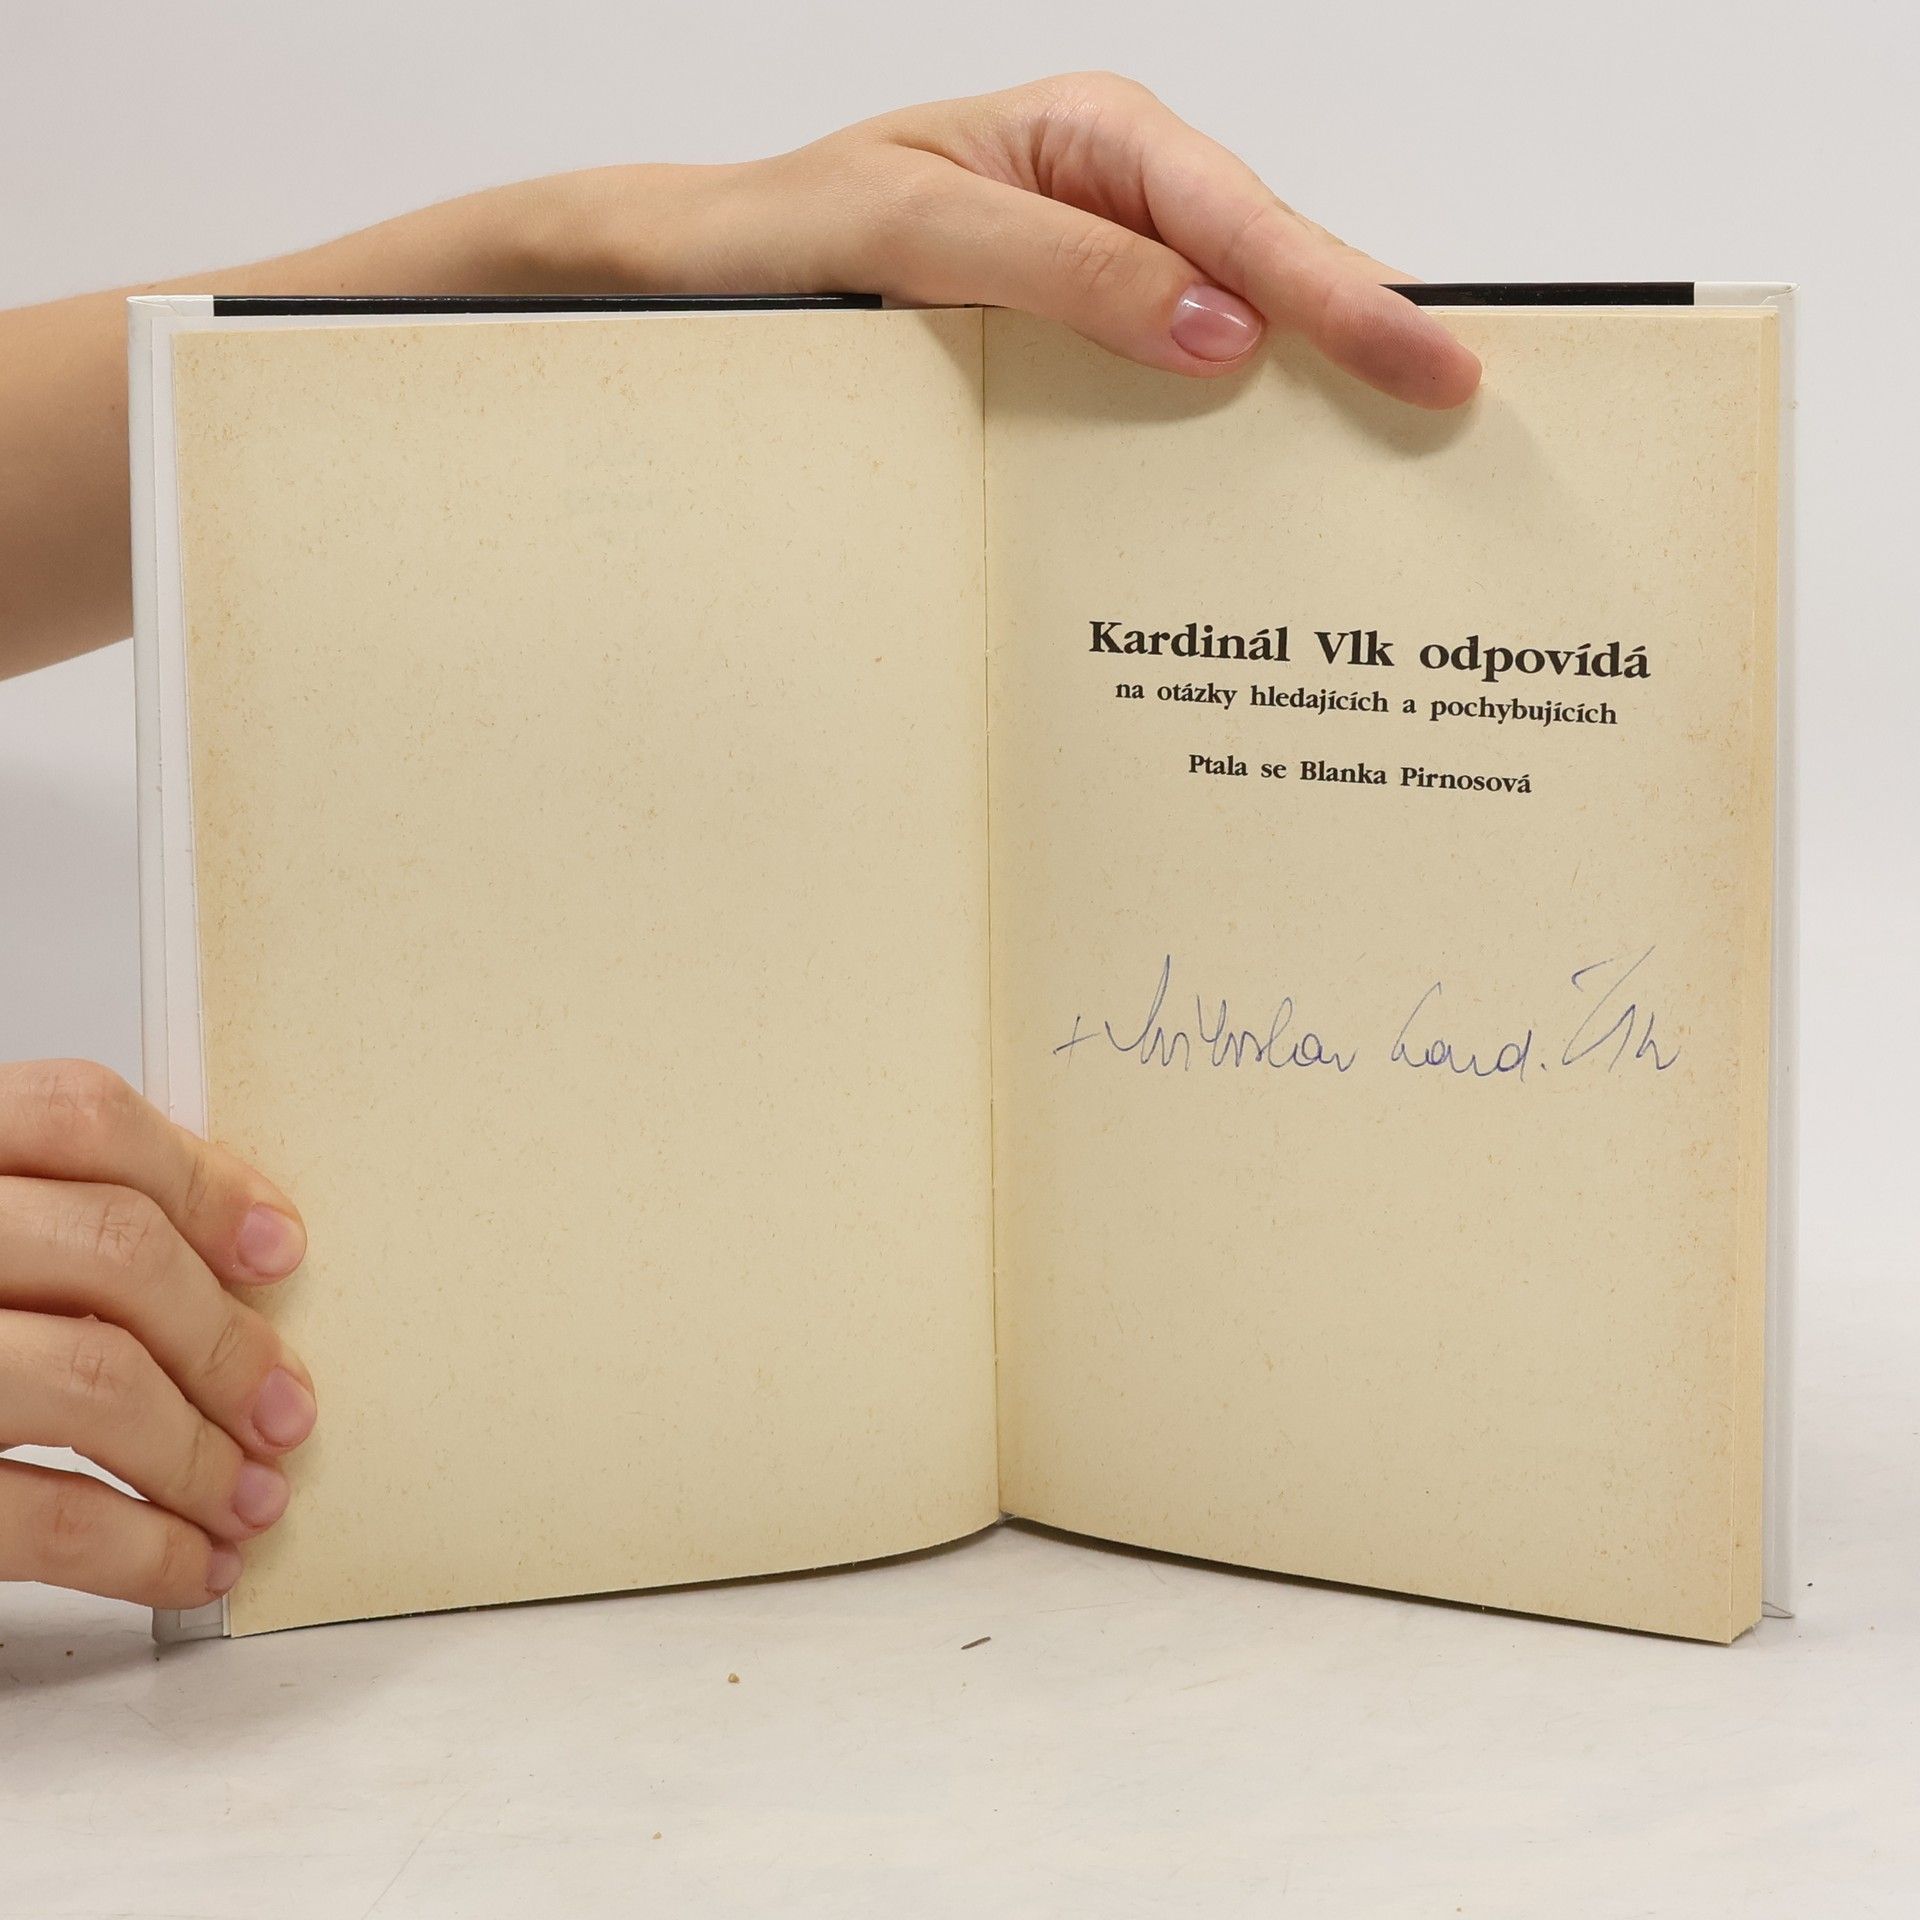 Kardinál Vlk odpovídá
na otázky hledajících a pochybujících
Ptala se Blanka Pirnosová
+ Miloslav Card. Vlk